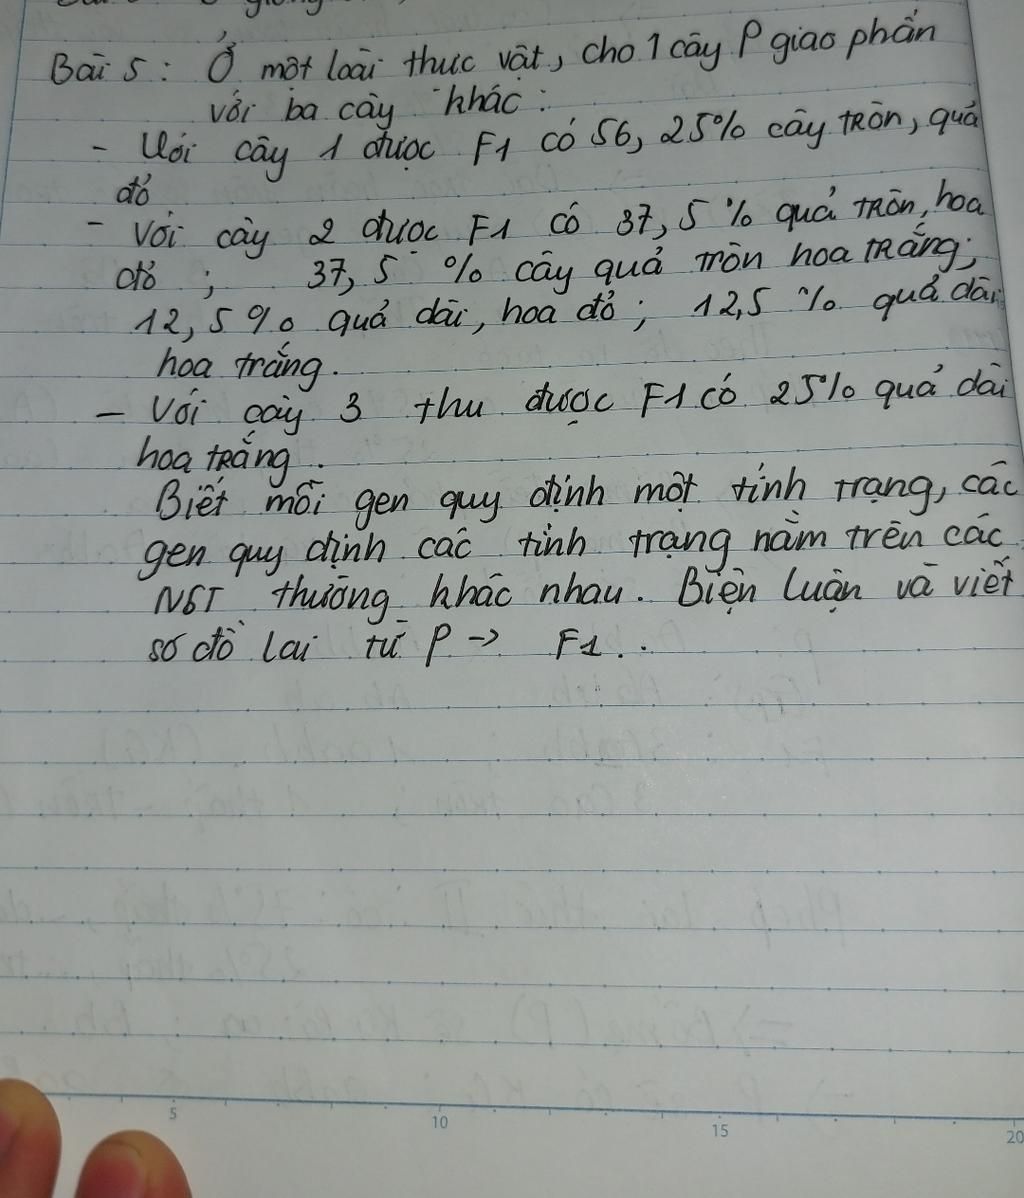 giống
Bài 5: Ở một loài thực vật, cho 1 cây P giao phấn
với ba cây khác:
- Với cây 1 được F1 có 56,25% cây tròn, quả
đỏ
- Với cây 2 được F1 có 37,5% quả tròn, hoa
đỏ; 37,5% cây quả tròn hoa trắng;
12,5% quả dài, hoa đỏ; 12,5% quả dài
hoa trắng.
- Với cây 3 thu được F1 có 25% quả dài
hoa trắng.
Biết mỗi gen quy định một tính trạng, các
gen quy định các tính trạng nằm trên các
NST thường khác nhau. Biện luận và viết
sơ đồ lai từ P -> F1..
5 10 15 20